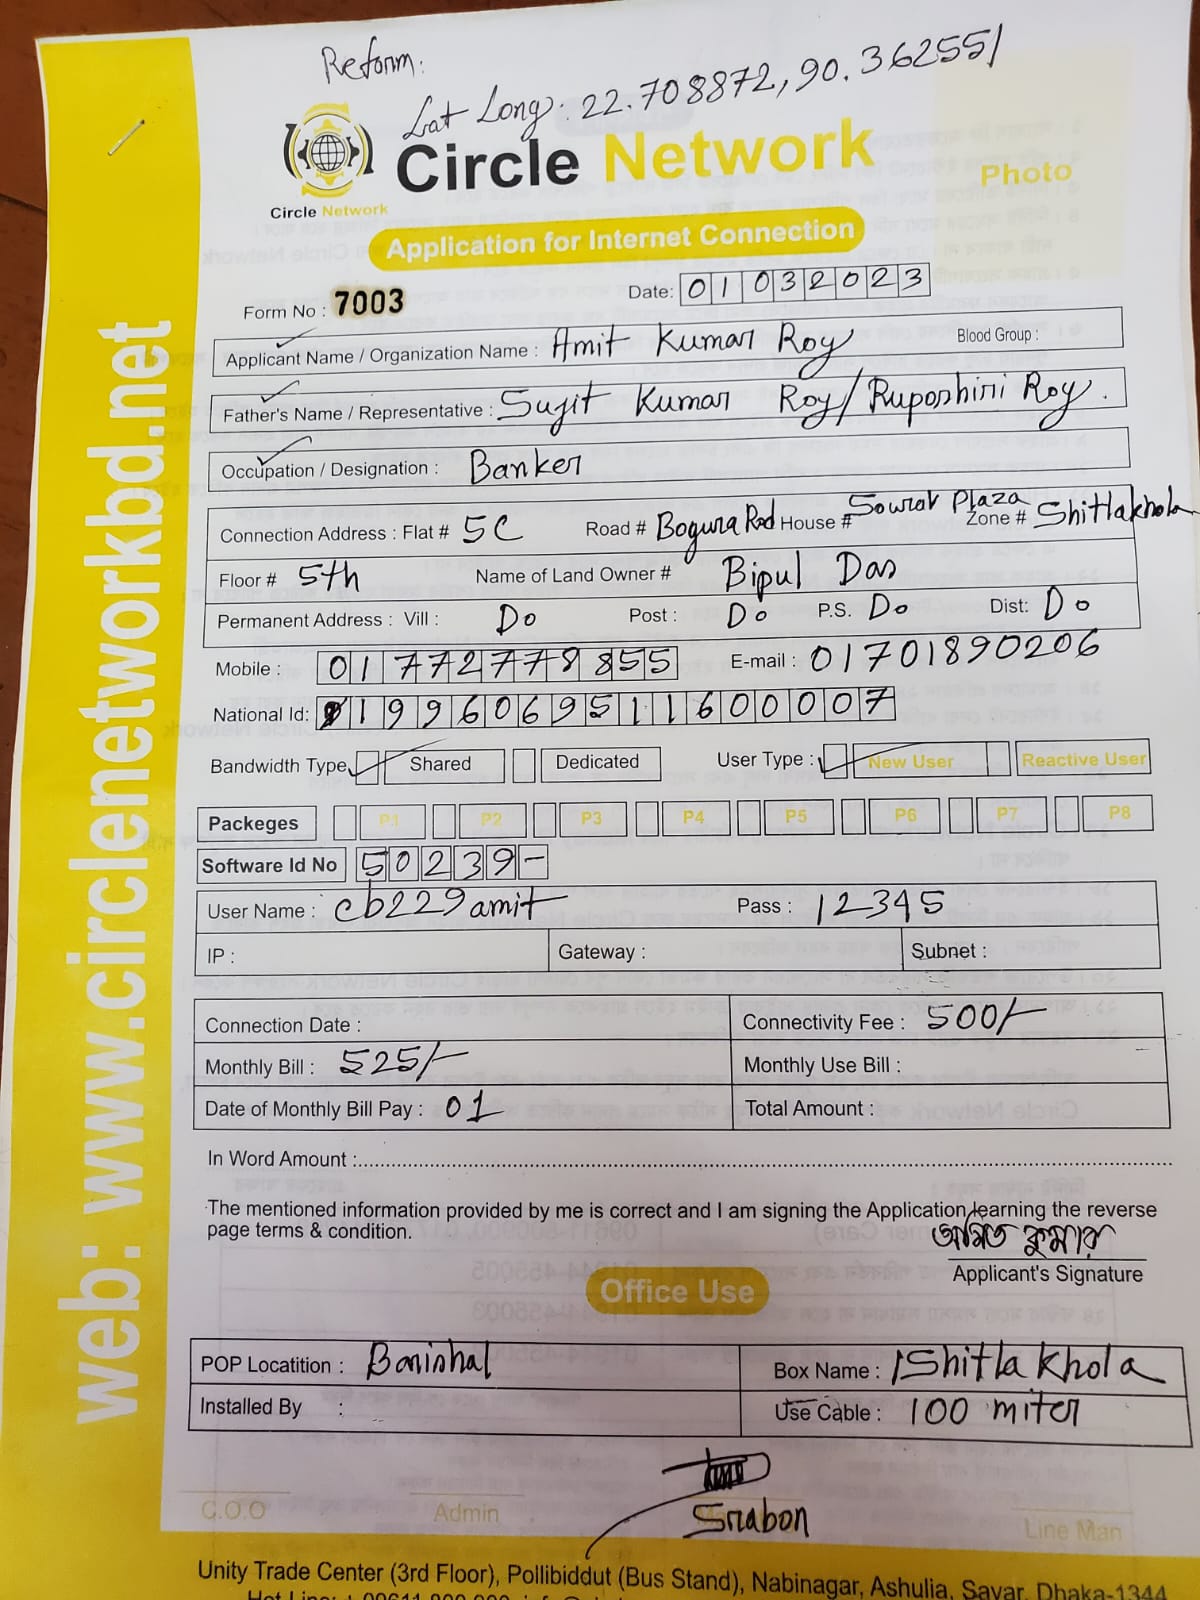 Reform:
Lat Long: 22.708872, 90.362551
Circle Network
Circle Network
Photo
Application for Internet Connection
Form No : 7003
Date: 01032023
Applicant Name / Organization Name : Amit Kumar Roy Blood Group :
Father's Name / Representative : Sujit Kumar Roy/Ruposhini Roy.
Occupation / Designation : Banker
Connection Address : Flat # 5C Road # Bogura Rod House # Sourav Plaza Zone # Shitlakhola
Floor # 5th Name of Land Owner # Bipul Das
Permanent Address : Vill : Do Post : Do P.S. Do Dist: Do
Mobile : 01772778855 E-mail : 01701890206
National Id: 1996069511600007
Bandwidth Type Shared Dedicated User Type : New User Reactive User
Packeges P1 P2 P3 P4 P5 P6 P7 P8
Software Id No 50239-
User Name : cb229amit Pass : 12345
IP : Gateway : Subnet :
Connection Date : Connectivity Fee : 500/-
Monthly Bill : 525/- Monthly Use Bill :
Date of Monthly Bill Pay : 01 Total Amount :
In Word Amount :
The mentioned information provided by me is correct and I am signing the Application learning the reverse
page terms & condition.
অমিত কুমার
Applicant's Signature
Office Use
POP Locatition : Barishal Box Name : Shitla Khola
Installed By : Use Cable : 100 miter
Srabon
C.O.O Admin Line Man
Unity Trade Center (3rd Floor), Pollibiddut (Bus Stand), Nabinagar, Ashulia, Savar, Dhaka-1344
web: www.circlenetworkbd.net